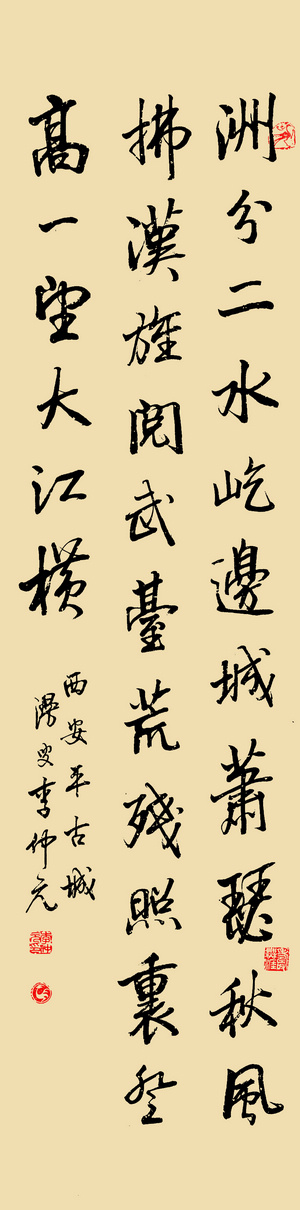 洲分二水屹邊城蕭瑟秋風
拂漢旌閱武臺荒殘照裏登
高一望大江橫
西安平古城
漫叟李仲元